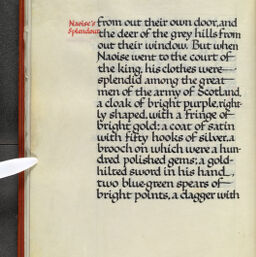 Naoise's
Splendour
from out their own door, and
the deer of the grey hills from
out their window. But when
Naoise went to the court of
the king, his clothes were
splendid among the great
men of the army of Scotland,
a cloak of bright purple, right-
ly shaped, with a fringe of
bright gold; a coat of satin
with fifty hooks of silver, a
brooch on which were a hun-
dred polished gems; a gold-
hilted sword in his hand,
two blue-green spears of
bright points, a dagger with